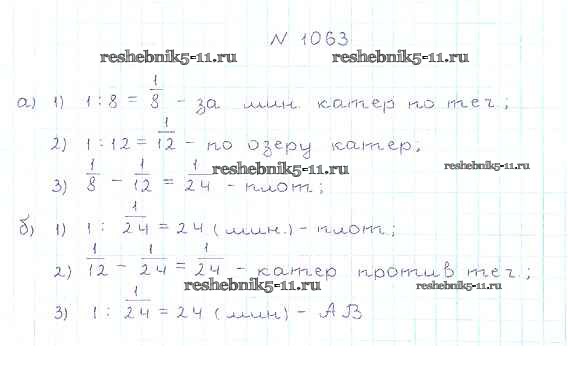 N 1063
reshebnik5-11.ru reshebnik5-11.ru
а) 1) 1 : 8 = 1/8 - за мин. катер по теч.;
2) 1 : 12 = 1/12 - по озеру катер;
reshebnik5-11.ru reshebnik5-11.ru
3) 1/8 - 1/12 = 1/24 - плот;
б) 1) 1 : 1/24 = 24 (мин.) - плот;
2) 1/12 - 1/24 = 1/24 - катер против теч.;
reshebnik5-11.ru reshebnik5-11.ru
3) 1 : 1/24 = 24 (мин) - АВ